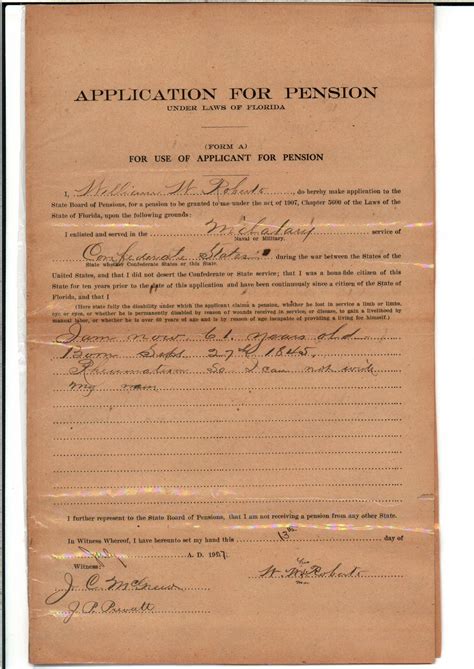 APPLICATION FOR PENSION
UNDER LAWS OF FLORIDA
(FORM A)
FOR USE OF APPLICANT FOR PENSION
I, William W Roberts, do hereby make application to the
State Board of Pensions, for a pension to be granted to me under the act of 1907, Chapter 5600 of the Laws of the
State of Florida, upon the following grounds:
I enlisted and served in the Militarty service of
Naval or Military.
Confederate States during the war between the States of the
State whether Confederate States or this State.
United States, and that I did not desert the Confederate or State service; that I was a bona-fide citizen of this
State for ten years prior to the date of this application and have been continuously since a citizen of the State of
Florida, and that I
(Here state fully the disability under which the applicant claims a pension, whether he lost in service a limb or limbs,
eye or eyes, or whether he is permanently disabled by reason of wounds received in service, or disease, to gain a livelihood by
manual labor, or whether he is over 60 years of age and is by reason of age incapable of providing a living for himself.)
I am now 61 years old
Born Sept 27th 1845.
Rheumatism So I can not wride
my nam
I further represent to the State Board of Pensions, that I am not receiving a pension from any other State.
In Witness Whereof, I have hereunto set my hand this 13th day of
A. D. 1907.
Witness:
his
W. W x Roberts
mar
J. C. McGrew
J. P. Prevatt